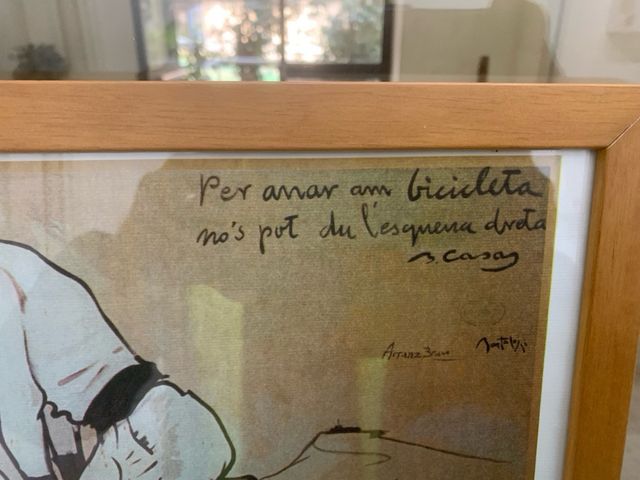 Per anar am bicicleta
no's pot du l'esquena dreta
R. Casas
Arranz Bravo
Bartolozzi